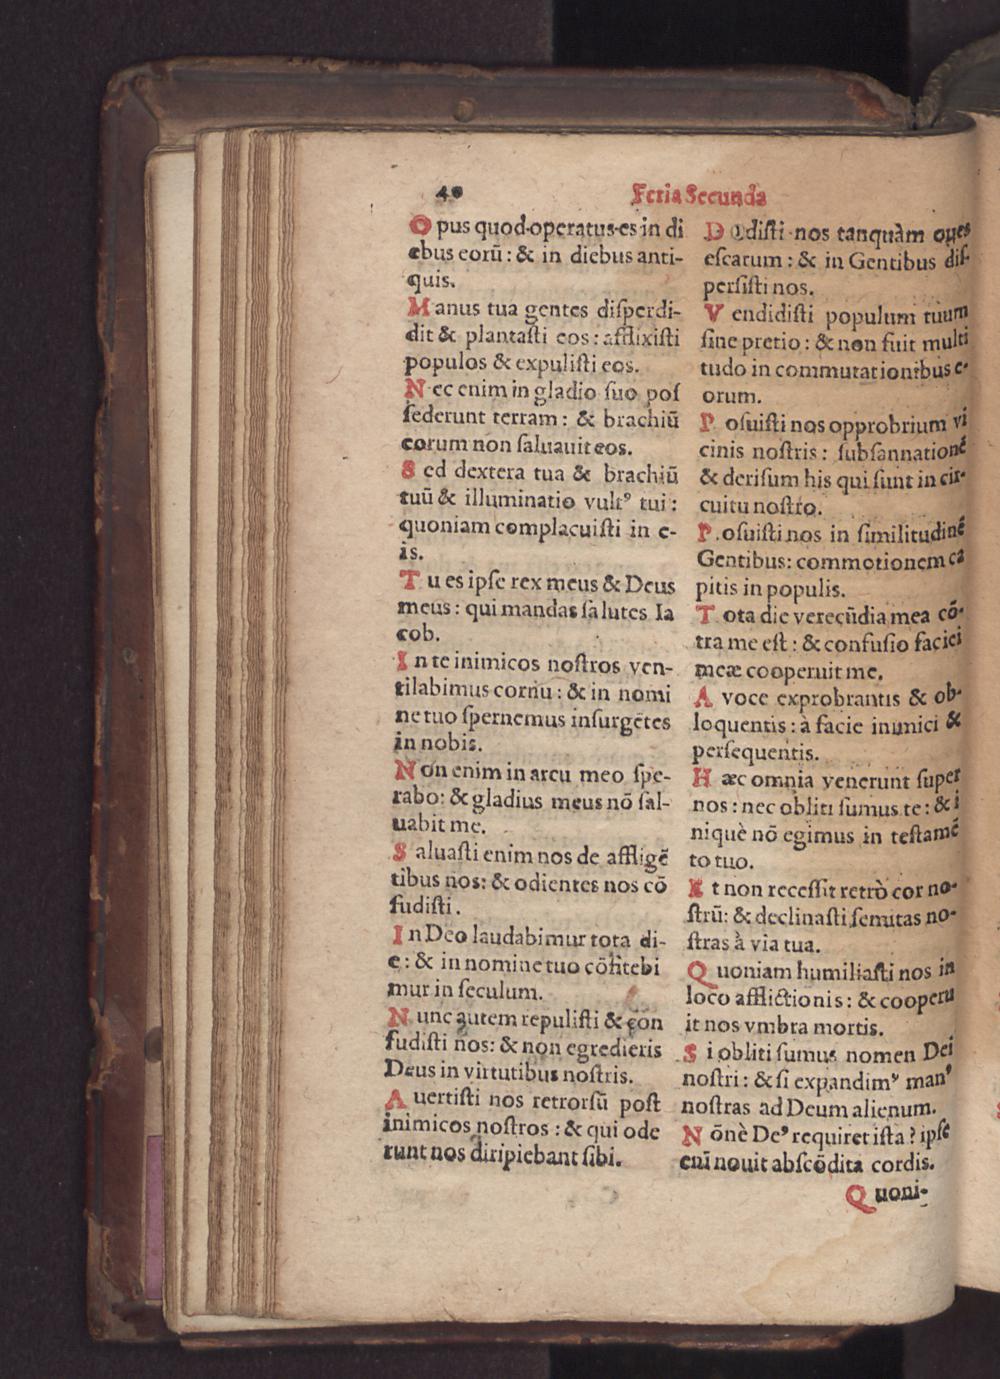 40
Feria Secunda
Opus quod operatus es in di
ebus eorū: & in diebus anti-
quis.
Manus tua gentes diſperdi-
dit & plantaſti eos: afflixiſti
populos & expuliſti eos.
Nec enim in gladio ſuo poſ
ſederunt terram: & brachiū
eorum non ſaluauit eos.
Sed dextera tua & brachiū
tuū & illuminatio vultꝰ tui:
quoniam complacuiſti in e-
is.
Tu es ipſe rex meus & Deus
meus: qui mandas ſalutes Ia
cob.
In te inimicos noſtros ven-
tilabimus cornu: & in nomi
ne tuo ſpernemus inſurgētes
in nobis.
Non enim in arcu meo ſpe-
rabo: & gladius meus nō ſal-
uabit me.
Saluaſti enim nos de affligē
tibus nos: & odientes nos cō
fudiſti.
In Deo laudabimur tota di-
e: & in nomine tuo cōfitebi
mur in ſeculum.
Nunc autem repuliſti & con
fudiſti nos: & non egredieris
Deus in virtutibus noſtris.
Auertiſti nos retrorſū poſt
inimicos noſtros: & qui ode
runt nos diripiebant ſibi.
Dediſti nos tanquàm oues
eſcarum: & in Gentibus diſ-
perſiſti nos.
Vendidiſti populum tuum
ſine pretio: & non fuit multi
tudo in commutationibus e-
orum.
Poſuiſti nos opprobrium vi
cinis noſtris: ſubſannationē
& deriſum his qui ſunt in cir-
cuitu noſtro.
Poſuiſti nos in ſimilitudinē
Gentibus: commotionem ca
pitis in populis.
Tota die verecūdia mea cō-
tra me eſt: & confuſio faciei
meæ cooperuit me.
A voce exprobrantis & ob-
loquentis: à facie inimici &
perſequentis.
Hæc omnia venerunt ſuper
nos: nec obliti ſumus te: & i
niquè nō egimus in teſtamē
to tuo.
Et non receſſit retrò cor no-
ſtrū: & declinaſti ſemitas no-
ſtras à via tua.
Quoniam humiliaſti nos in
loco afflictionis: & cooperu
it nos vmbra mortis.
Si obliti ſumus nomen Dei
noſtri: & ſi expandimꝰ manꝰ
noſtras ad Deum alienum.
Nōnè Deꝰ requiret iſta? ipſe
enī nouit abſcōdita cordis.
Quoni-